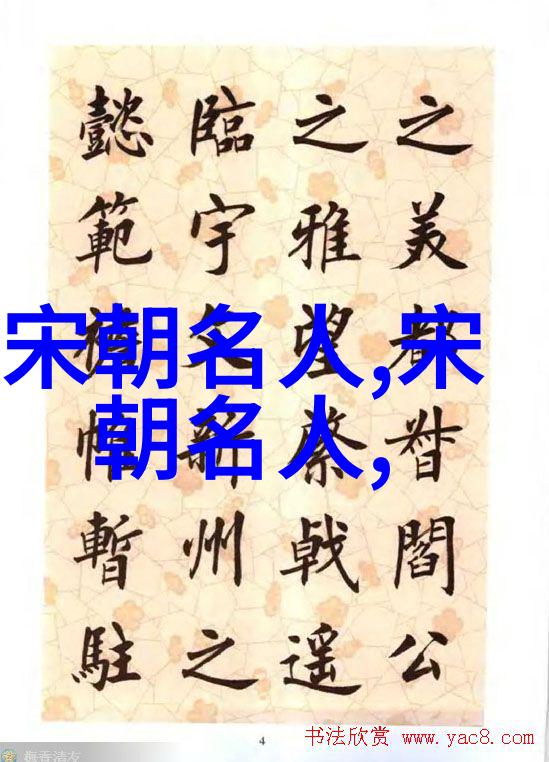 之美都督閻公
之雅望棨戟遥
臨宇文新州之
懿範襜帷暫駐
宋朝名人,宋
朝名人,
4
书法欣赏 www.yac8.com